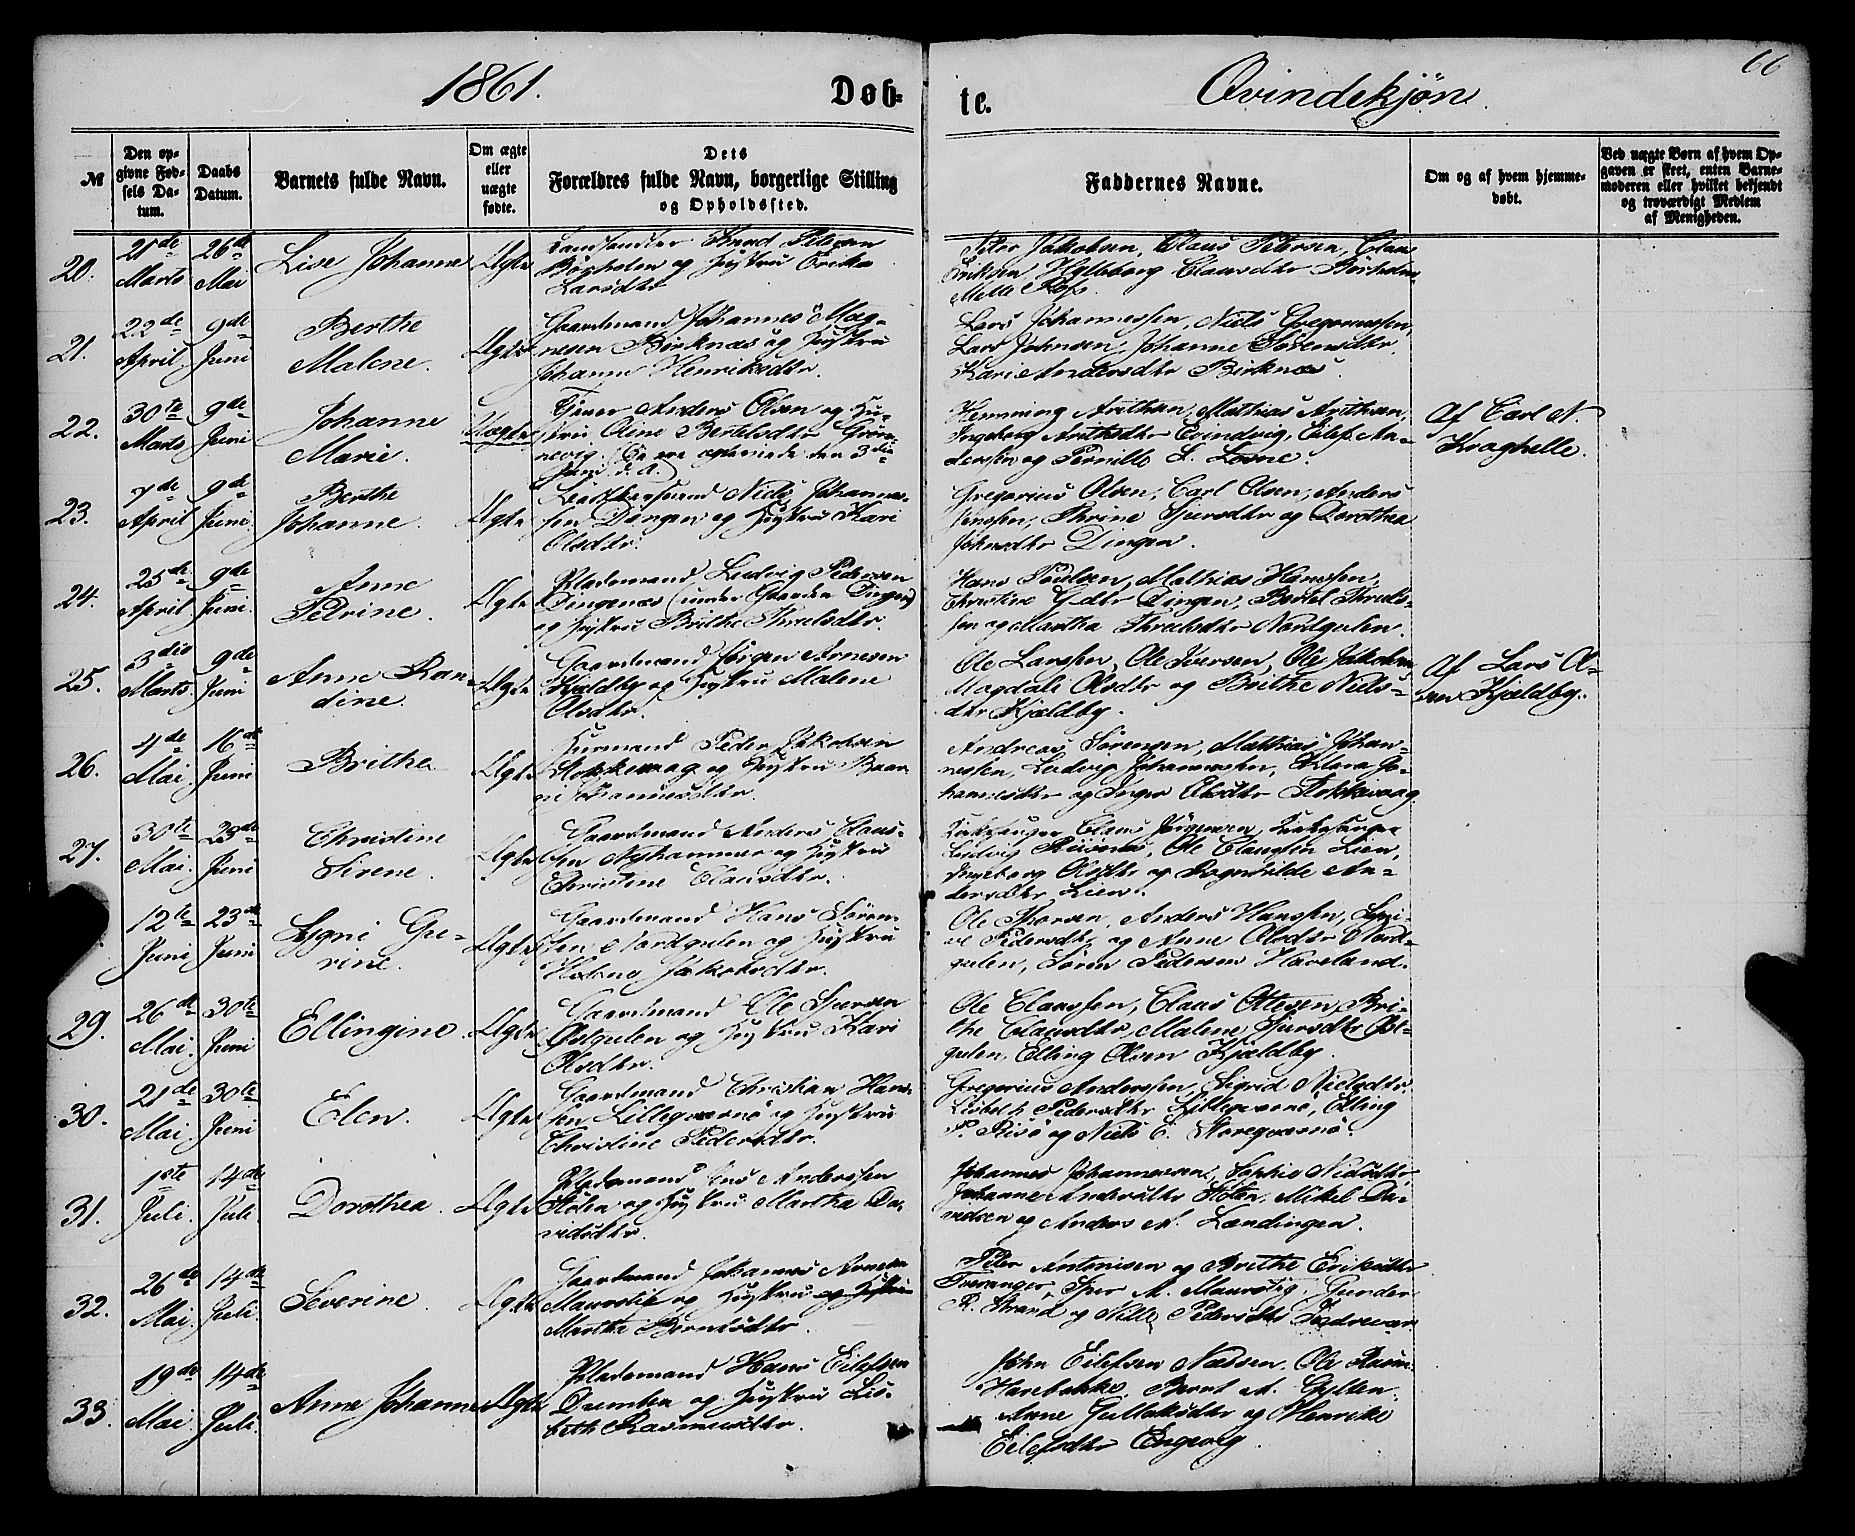 66
1861.
Døb-
te.
Qvindekjøn.
№
Den op-
givne Fød-
sels Da-
tum.
Daabs
Datum.
Barnets fulde Navn.
Om ægte
eller
uægte
fødte.
Dets
Forældres fulde Navn, borgerlige Stilling
og Opholdssted.
Faddernes Navne.
Om og af hvem hjemme-
døbt.
Ved uægte Børn af hvem Op-
gaven er skeet, enten Barne-
moderen eller hvilket bekjendt
og troværdigt Medlem
af Menigheden.
20.
21de Marts
26de Mai
Lise Johanne
Ægte
Landhandler Knud Petersen
Børholm og Hustru Erika
Larsdtr
Peter Jakobsen, Claus Petersen, Claus
Eriksen, Hylleborg Clausdtr Børholm
21.
22de April
9de Juni
Berthe
Malene.
Ægte
Gaardmand Johannes Mag-
nesen Birknæs og Hustru
Johanne Henriksdtr.
Lars Johannessen, Niels Gregoriussen,
Lars Johnsen, Johanne Sørensdtr
Kari Andersdtr Birknæs.
22.
30te Marts
9de Juni
Johanne
Marie.
Uægte
Tjener Anders Olsen og Hu-
stru Oline Bertelsdtr Grøn-
nevig. (De ere ægteviede den 3die
Juni d. A.)
Henning Arithsen, Mathias Arithsen,
Ingeborg Arithsdtr Evindvig, Eilef An-
dersen og Pernille L. Løvne.
Af Carl N.
Kraghelle.
23.
7de April
9de Juni
Berthe
Johanne.
Ægte
Niels Johannes-
sen Dingen og Hustru Kari
Olsdtr.
Gregorius Olsen, Carl Olsen, Anders
Jenssen, Thrine Sjursdtr og Dorothea
Johnsdtr Dingen.
24.
25de April
9de Juni
Anne
Petrine.
Ægte
Pladsmand Ludvig Pedersen
Dingenæs (under Gaarden Dingen)
og Hustru Brithe Thruelsdtr.
Hans Poulsen, Mathias Hanssen,
Christine Gdtr Dingen, Bertel Thruels-
sen og Martha Thruelsdtr Nordgulen.
25.
3die Marts
9de Juni
Anne Ran-
dine.
Ægte
Gaardmand Jørgen Arnesen
Kjeldby og Hustru Malene
Olsdtr.
Ole Larssen, Ole Iversen, Ole Jakobsen
Magdali Olsdtr og Brithe Niels-
dtr Kjældby.
Af Lars O-
sen Kjældby.
26.
4de Mai
16de Juni
Brithe
Ægte
Huusmand Peder Jakobsen
Stokkevaag og Hustru Baar-
ni Johannesdtr.
Andreas Sørensen, Mathias Johan-
nessen, Ludvig Johannessen, Klara Jo-
hannesdtr og Inger Olsdtr Stokkevaag
27.
30te Mai.
23de Juni
Christine
Sirene.
Ægte
Gaardmand Anders Claus-
sen Nyhammer og Hustru
Christine Clausdtr.
Kirkesanger Claus Jørgensen, Kirkesanger
Ludvig Risnæs, Ole Claussen Lien,
Ingeborg Olsdtr og Ragnhilde An-
dersdtr Lien.
12te Juni
23de Juni
Agni Gu-
rine.
Ægte
Gaardmand Hans Søren-
sen Nordgulen og Hustru
Jakobsdtr.
Ole Thorsen, Anders Hanssen, Syni-
ve Pedersdtr og Anne Olsdtr Nord-
gulen, Søren Pedersen Haveland.
29.
26de Mai.
30te Juni
Ellingine.
Ægte
Gaardmand Ole Sjursen
Østgulen og Hustru Kari
Olsdtr.
Ole Claussen, Claus Ottesen, Bri-
the Clausdtr, Malene Sjursdtr Øst-
gulen, Elling Olsen Kjældby.
30.
21de Mai.
30te Juni
Elen.
Ægte
Gaardmand Christian Hans-
sen Lillegværnø og Hustru
Christine Pedersdtr.
Gregorius Anderssen, Sigrid Nielsdtr,
Lisbeth Pedersdtr Lillegværnø, Elling
P. Risø og Niels E. Storegværnø.
31.
1ste Juli.
14de Juli.
Dorothea.
Ægte
Pladsmand Jens Anderssen
Stølen og Hustru Martha Da-
vidsdtr.
Johannes Johannessen, Sophie Nielsdtr,
Johanne Andersdtr Stølen, Mikel Da-
vidsen og Anders A. Lændingen.
32.
26de Mai.
14de Juli.
Severine.
Ægte
Gaardmand Johannes Arnesen
Maurstig og Hustru og Hustru
Martha Berntsdtr.
Peter Antonisen og Brithe Eriksdtr
Tveranger, Sjur A. Maurstig, Gunder
R. Strand og Nille Pedersdtr
33.
19de Mai.
14de Juli.
Anne Johanne
Ægte
Pladsmand Hans Eilefsen
og Hustru Lis-
beth Rasmusdtr.
John Eilefsen Næssen, Ole Rasm.
Harebakke, Bernt A. Gylten.
Anne Gullaksdtr og Henrike
Eilefsdtr Engevig.